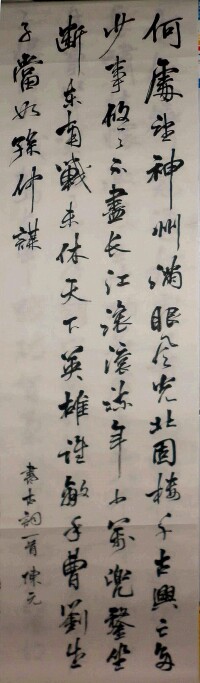 何處望神州滿眼风光北固楼千古興亡多
少事悠々不盡长江滚滚流年少萬兜鍪坐
断东南戰未休天下英雄誰敵手曹劉生
子當如孫仲謀
書古詞一首 陳元